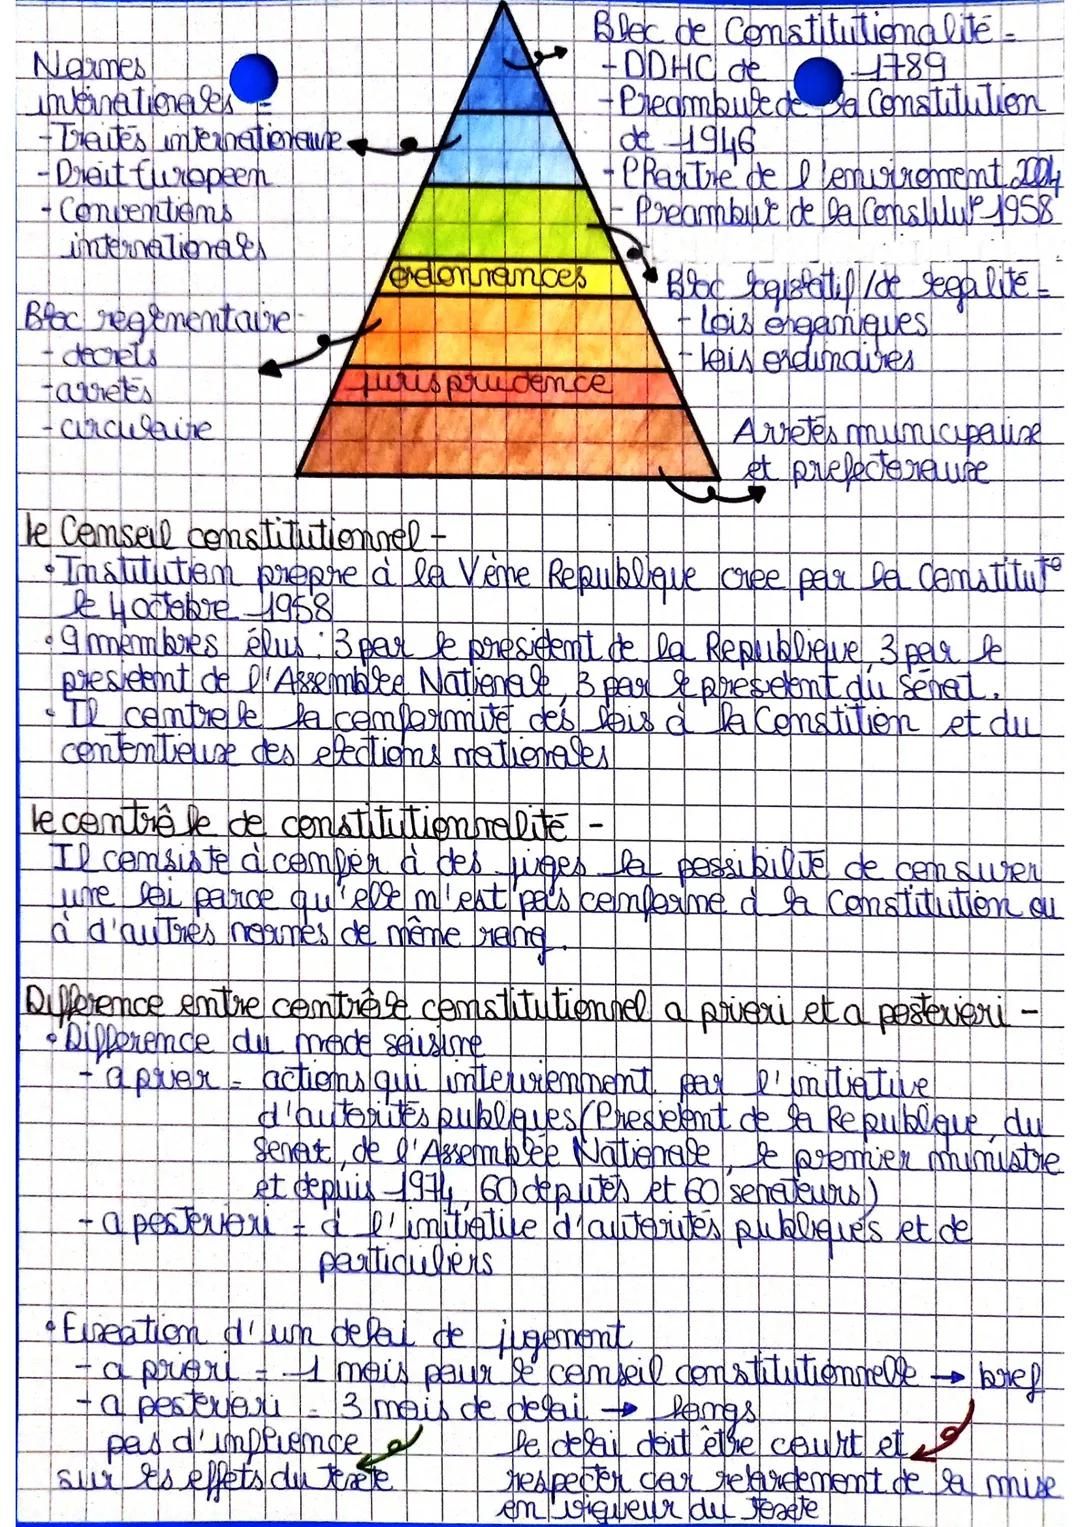 Bloc de Constitutionalité =
- DDHC de 1789
- Preambule de la Constitution
de 1946
- Chartre de l'environnement 2004
- Preambule de la Constitut° 1958
Normes
internationales =
- Traités internationaux
- Droit Européen
- Conventions
internationales
ordonnances
Bloc legislatif / de legalité =
- lois organiques
- lois ordinaires
Bloc règlementaire -
- decrets
- arretés
- circulaire
jurisprudence
Arretés municipaux
et prefectoraux
le Conseil constitutionnel -
• Institution propre à la Vème Republique cree par la Constitut°
le 4 octobre 1958
• 9 membres élus : 3 par le president de la Republique, 3 par le
president de l'Assemblée Nationale, 3 par le president du Sénat.
• Il controle la conformité des lois à la Constition et du
contentieux des elections nationales
le contrôle de constitutionnalité -
Il consiste à confér à des juges la possibilité de censurer
une loi parce qu'elle n'est pas conforme à la Constitution ou
à d'autres normes de même rang.
Difference entre contrôle constitutionnel a priori et a posteriori -
• Difference du mode saisine
- a prior = actions qui interviennent par l'initiative
d'autorités publiques (President de la Republique, du
Senat, de l'Assemblée Nationale, le premier ministre
et depuis 1974, 60 deputés et 60 senateurs)
- a posteriori = à l'initiative d'autorités publiques et de
particuliers
• Fixation d'un delai de jugement
- a priori = 1 mois pour le conseil constitutionnelle → bref
- a posteriori = 3 mois de delai → longs
pas d'impience
sur les effets du texte
le delai doit être court et
respecter car retardement de la mise
en vigueur du texte